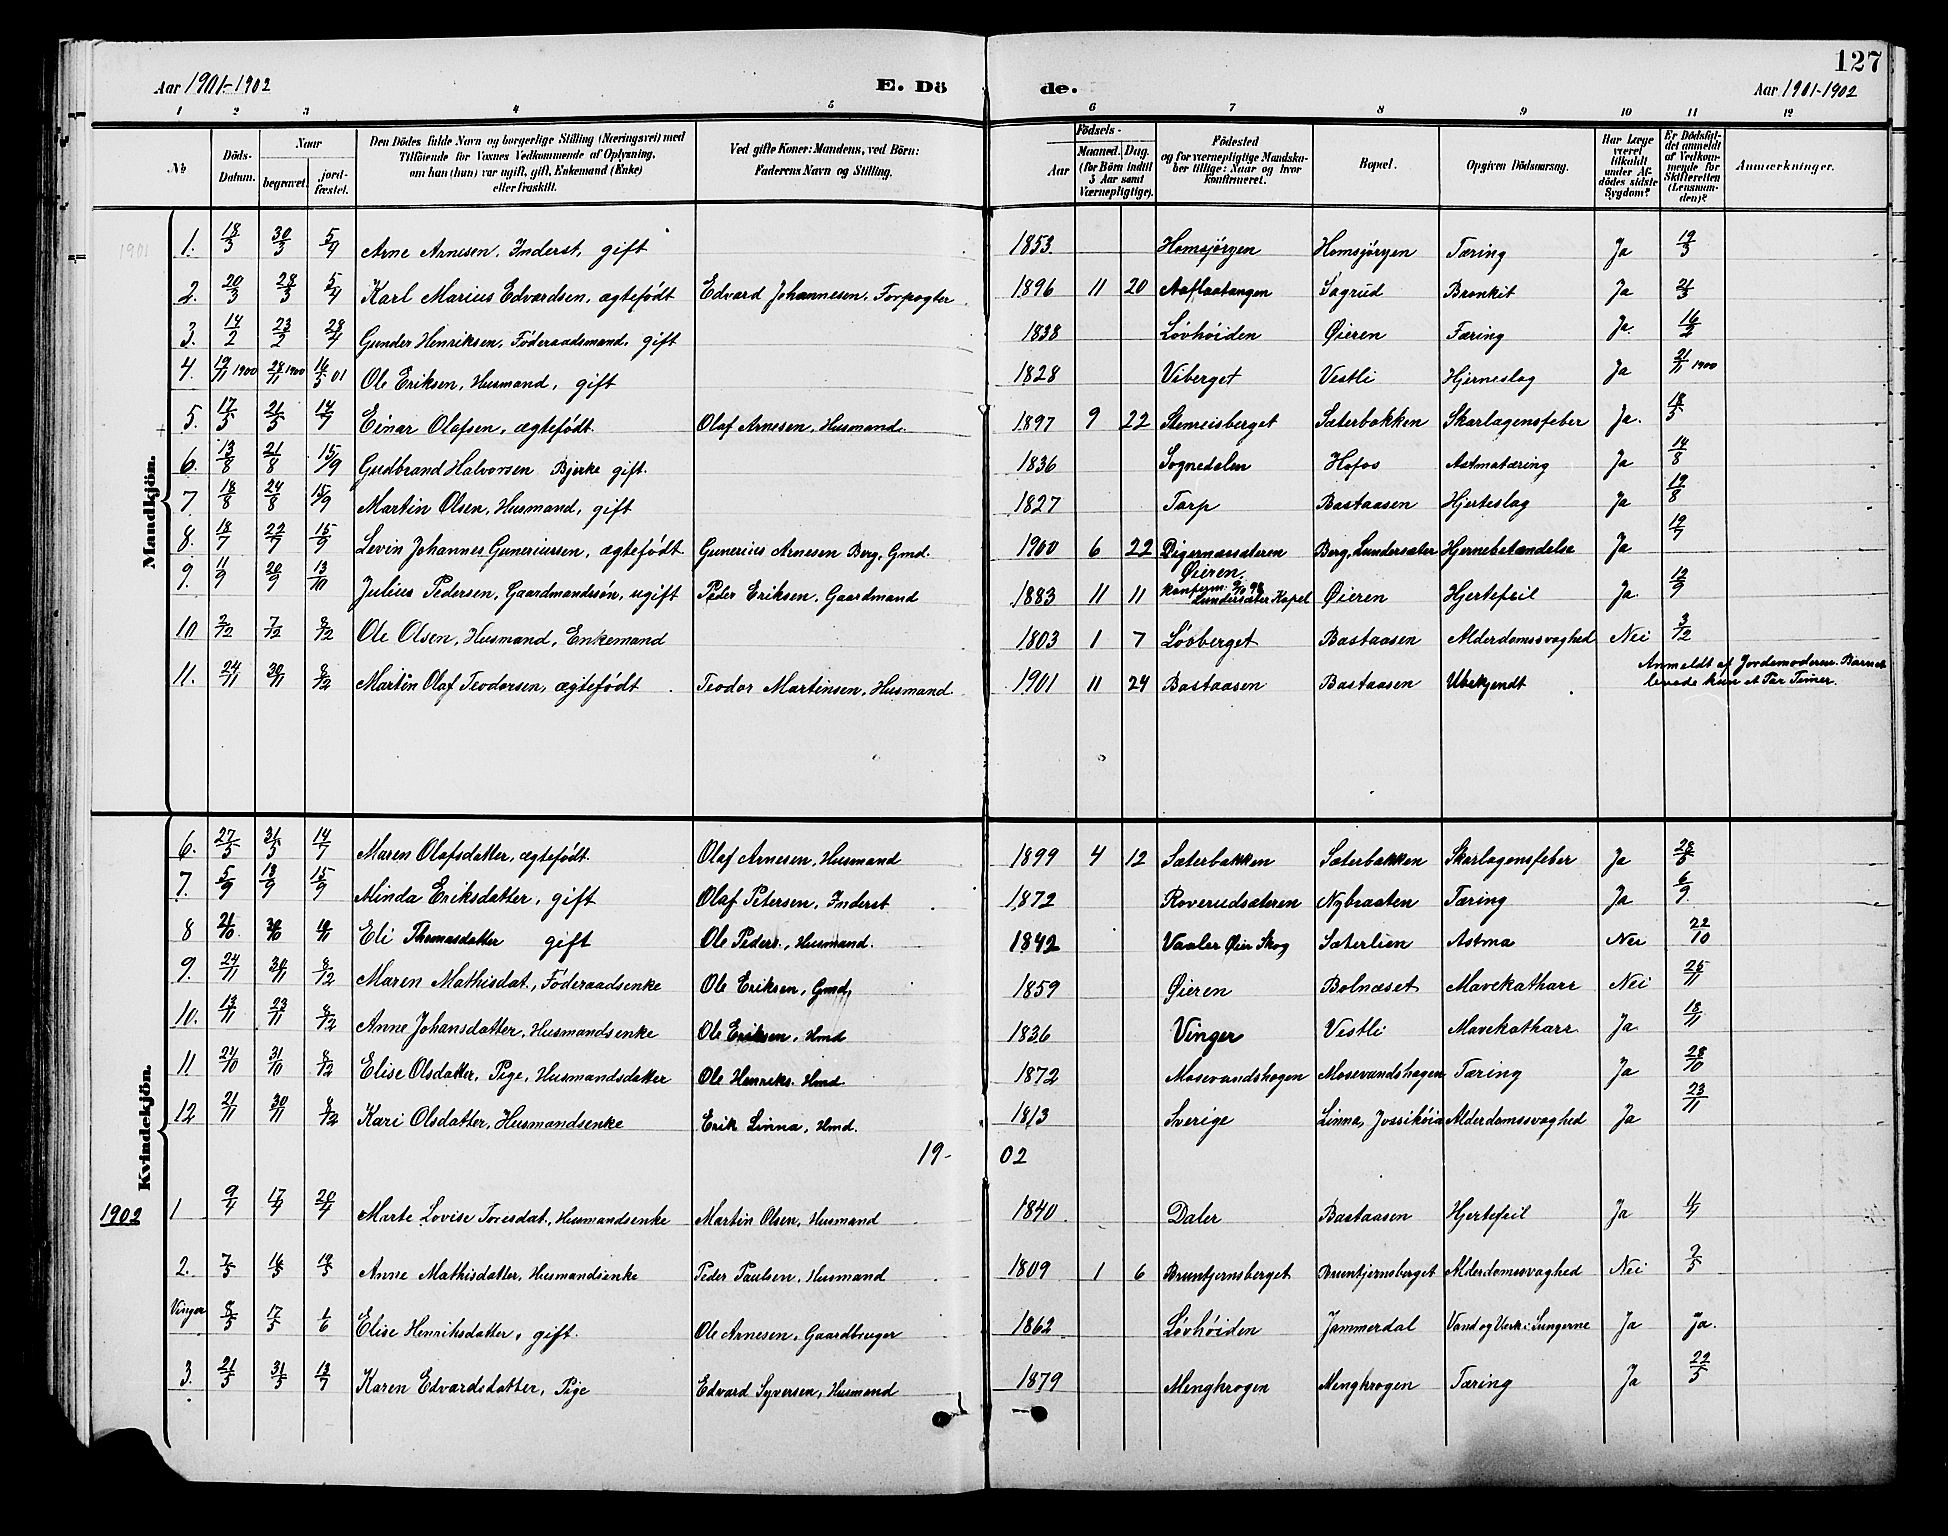 127
Aar 1901-1902 E. Dö de. Aar 1901-1902
1 2 3 4 5 6 7 8 9 10 11 12
No
Döds-Datum.
Naar
begravet.
jord-fæstet.
Den Dödes fulde Navn og borgerlige Stilling (Næringsvei) med
Tilföiende for Voxnes Vedkommende af Oplysning,
om han (hun) var ugift, gift, Enkemand (Enke)
eller fraskilt.
Ved gifte Koner: Mandens, ved Börn:
Faderens Navn og Stilling.
Födsels-
Aar
Maaned. Dag.
(for Börn indtil
5 Aar samt
Værnepligtige).
Födested
og for værnepligtige Mandska-
ber tillige: Naar og hvor
konfirmeret.
Bopæl.
Opgiven Dödsaarsag.
Har Læge
været
tilkaldt
under Af-
dödes sidste
Sygdom?
Er Dödsfal-
det anmeldt
af Vedkom-
mende for
Skifteretten
(Lensman-
den)?
Anmærkninger.
1901
Mandkjön.
1. 18/3 30/3 5/4 Arne Arnesen, Inderst, gift 1853 Homsjörgen Homsjörgen Tæring Ja 19/3
2. 20/3 28/3 5/4 Karl Marius Edvardsen, ægtefödt Edvard Johannesen, Forpagter 1896 11 20 Aaflaatangen Sagrud Bronkit Ja 21/3
3. 14/2 23/2 28/4 Gunder Henriksen, Föderaadsmand, gift 1838 Løvhøiden Øieren Tæring Ja. 16/2
4. 19/11 1900 24/11 1900 16/5 01 Ole Eriksen, Husmand, gift 1828 Viberget Vestli Hjerneslag Ja 21/11 1900
5. 17/5 21/5 14/7 Einar Olafsen, ægtefödt. Olaf Arnesen, Husmand. 1897 9 22 Stenreisberget Sæterbakken Skarlagensfeber Ja. 18/5
6. 13/8 21/8 15/9 Gudbrand Halvorsen Bjerke gift. 1836 Sognedalen Hofos Astmatæring Ja 14/8
7 18/8 24/8 15/9 Martin Olsen, Husmand, gift 1827 Tarp Bastaasen Hjerteslag Ja 19/8
8. 18/7 22/7 15/9 Levin Johannes Guneriussen, ægtefödt Gunerius Arnesen Berg, Gmd. 1900 6 22 Digernæssæteren Berg, Lundersæter Hjernebetændelse Ja 19/7
9. 11/9 20/9 13/10 Julius Pedersen, Gaardmandssøn, ugift Peder Eriksen, Gaardmand 1883 11 11 Øieren, konfirm: 9/10 98 Lundersæter Kapel Øieren Hjertefeil Ja. 12/9
10 2/12 7/12 8/12 Ole Olsen, Husmand, Enkemand 1803 1 7 Løvberget Bastaasen Alderdomssvaghed Nei 3/12
11. 24/11 30/11 8/12 Martin Olaf Teodorsen, ægtefödt Teodor Martinsen, Husmand 1901 11 24 Bastaasen Bastaasen Ubekjendt Anmeldt af Jordemoderen. Barnet
levede kun et Par Timer.
Kvindekjön.
6. 27/5 31/5 14/7 Maren Olafsdatter, ægtefödt. Olaf Arnesen, Husmand 1899 4 12 Sæterbakken Sæterbakken Skarlagensfeber Ja 28/5
7. 5/9 13/9 15/9 Minda Eriksdatter, gift Olaf Petersen, Inderst 1872 Roverudsæteren Nybraaten Tæring Ja 6/9
8 21/10 Eli Thomasdatter gift Ole Peders., Husmand. 1842 Vaaler Øier Skog Sæterlien Astma Nei 22/10
9. 24/11 30/11 8/12 Maren Mathisdat., Föderaadsenke Ole Eriksen, Gmd, 1859 Øieren Bolnæset Mavekatharr Nei 25/11
10. 13/11 23/11 8/12 Anne Johansdatter, Husmandsenke Ole Eriksen, Hmd 1836 Vinger Vestli Mavekatharr Ja 18/11
11 24/10 31/10 8/12 Elise Olsdatter, Pige, Husmandsdatter Ole Henriks. Hmd. 1872 Mosevandshogen Mosevandshogen Tæring Ja 28/10
12 21/11 30/11 8/12 Kari Olsdatter, Husmandsenke Erik Linna, Hmd. 1813 Sverige Linna, Alderdomssvaghed Ja 23/11
19- 02
1902
1 9/4 17/4 20/4 Marte Lovise Toresdat., Husmandsenke Martin Olsen, Husmand 1840 Daler Bastaasen Hjertefeil Ja
2. 7/5 16/5 19/5 Anne Mathisdatter, Husmandsenke Peder Paulsen, Husmand 1809 1 6 Bruntjernsberget Bruntjernsberget Alderdomssvaghed Nei 9/5
Vinger 8/5 17/5 1/6 Elise Henriksdatter, gift. Ole Arnesen, Gaardbruger 1862 Løvhøiden Jammerdal Vand og Værk i Lungerne Ja ja.
3. 21/5 31/5 13/7 Karen Edvardsdatter, Pige Edvard Syversen, Husmand 1879 Menghrogen Menghrogen Tæring Ja 22/5